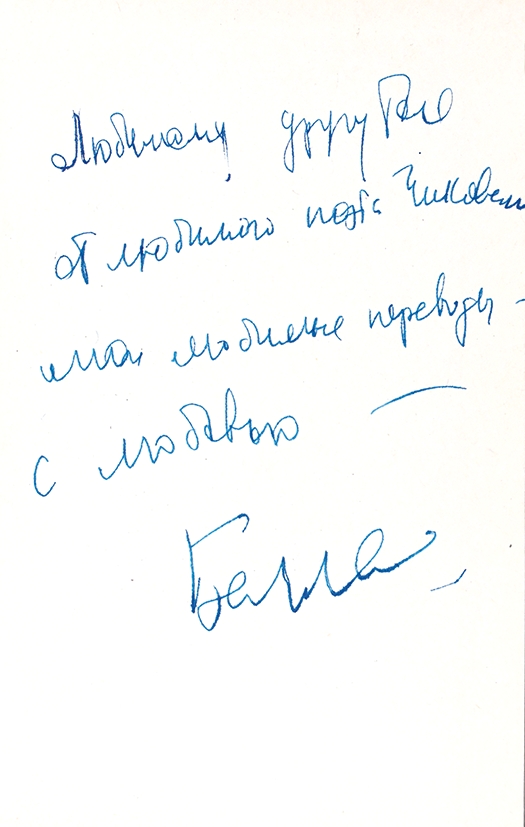 Любимому другу Гие
от любимого поэта Чиковани
мои любимые переводы –
с любовью –
Белла